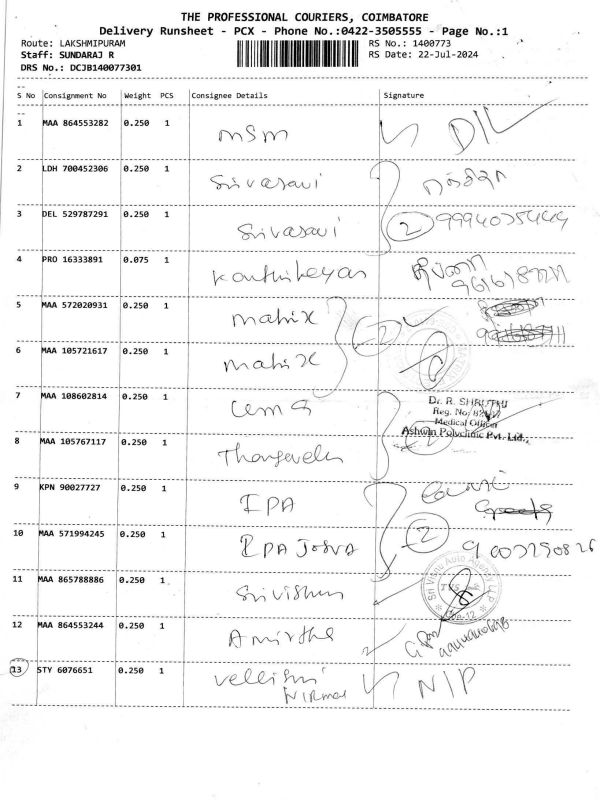 THE PROFESSIONAL COURIERS, COIMBATORE
Delivery Runsheet - PCX - Phone No.:0422-3505555 - Page No.:1
Route: LAKSHMIPURAM RS No.: 1400773
Staff: SUNDARAJ R RS Date: 22-Jul-2024
DRS No.: DCJB140077301
--
S No Consignment No Weight PCS Consignee Details Signature
--
1 MAA 864553282 0.250 1 MSM D/L
2 LDH 700452306 0.250 1 Srivasavi
3 DEL 529787291 0.250 1 Srivasavi 2
4 PRO 16333891 0.075 1 Karthikeyan
5 MAA 572020931 0.250 1 Matrix 2
6 MAA 105721617 0.250 1 Matrix
7 MAA 108602814 0.250 1
Dr. R. SHRUTHI
Reg. No.
Medical Officer
Ashwin Polyclinic Pvt. Ltd.,
8 MAA 105767117 0.250 1 Thangavelu
9 KPN 90027727 0.250 1 IPA
10 MAA 571994245 0.250 1 IPA 2 9003290826
11 MAA 865788886 0.250 1 Sri Vishnu
Sri Vishnu Auto Agency LLP
12 MAA 864553244 0.250 1 Amirtha
13 STY 6076651 0.250 1 Nirmal N/P